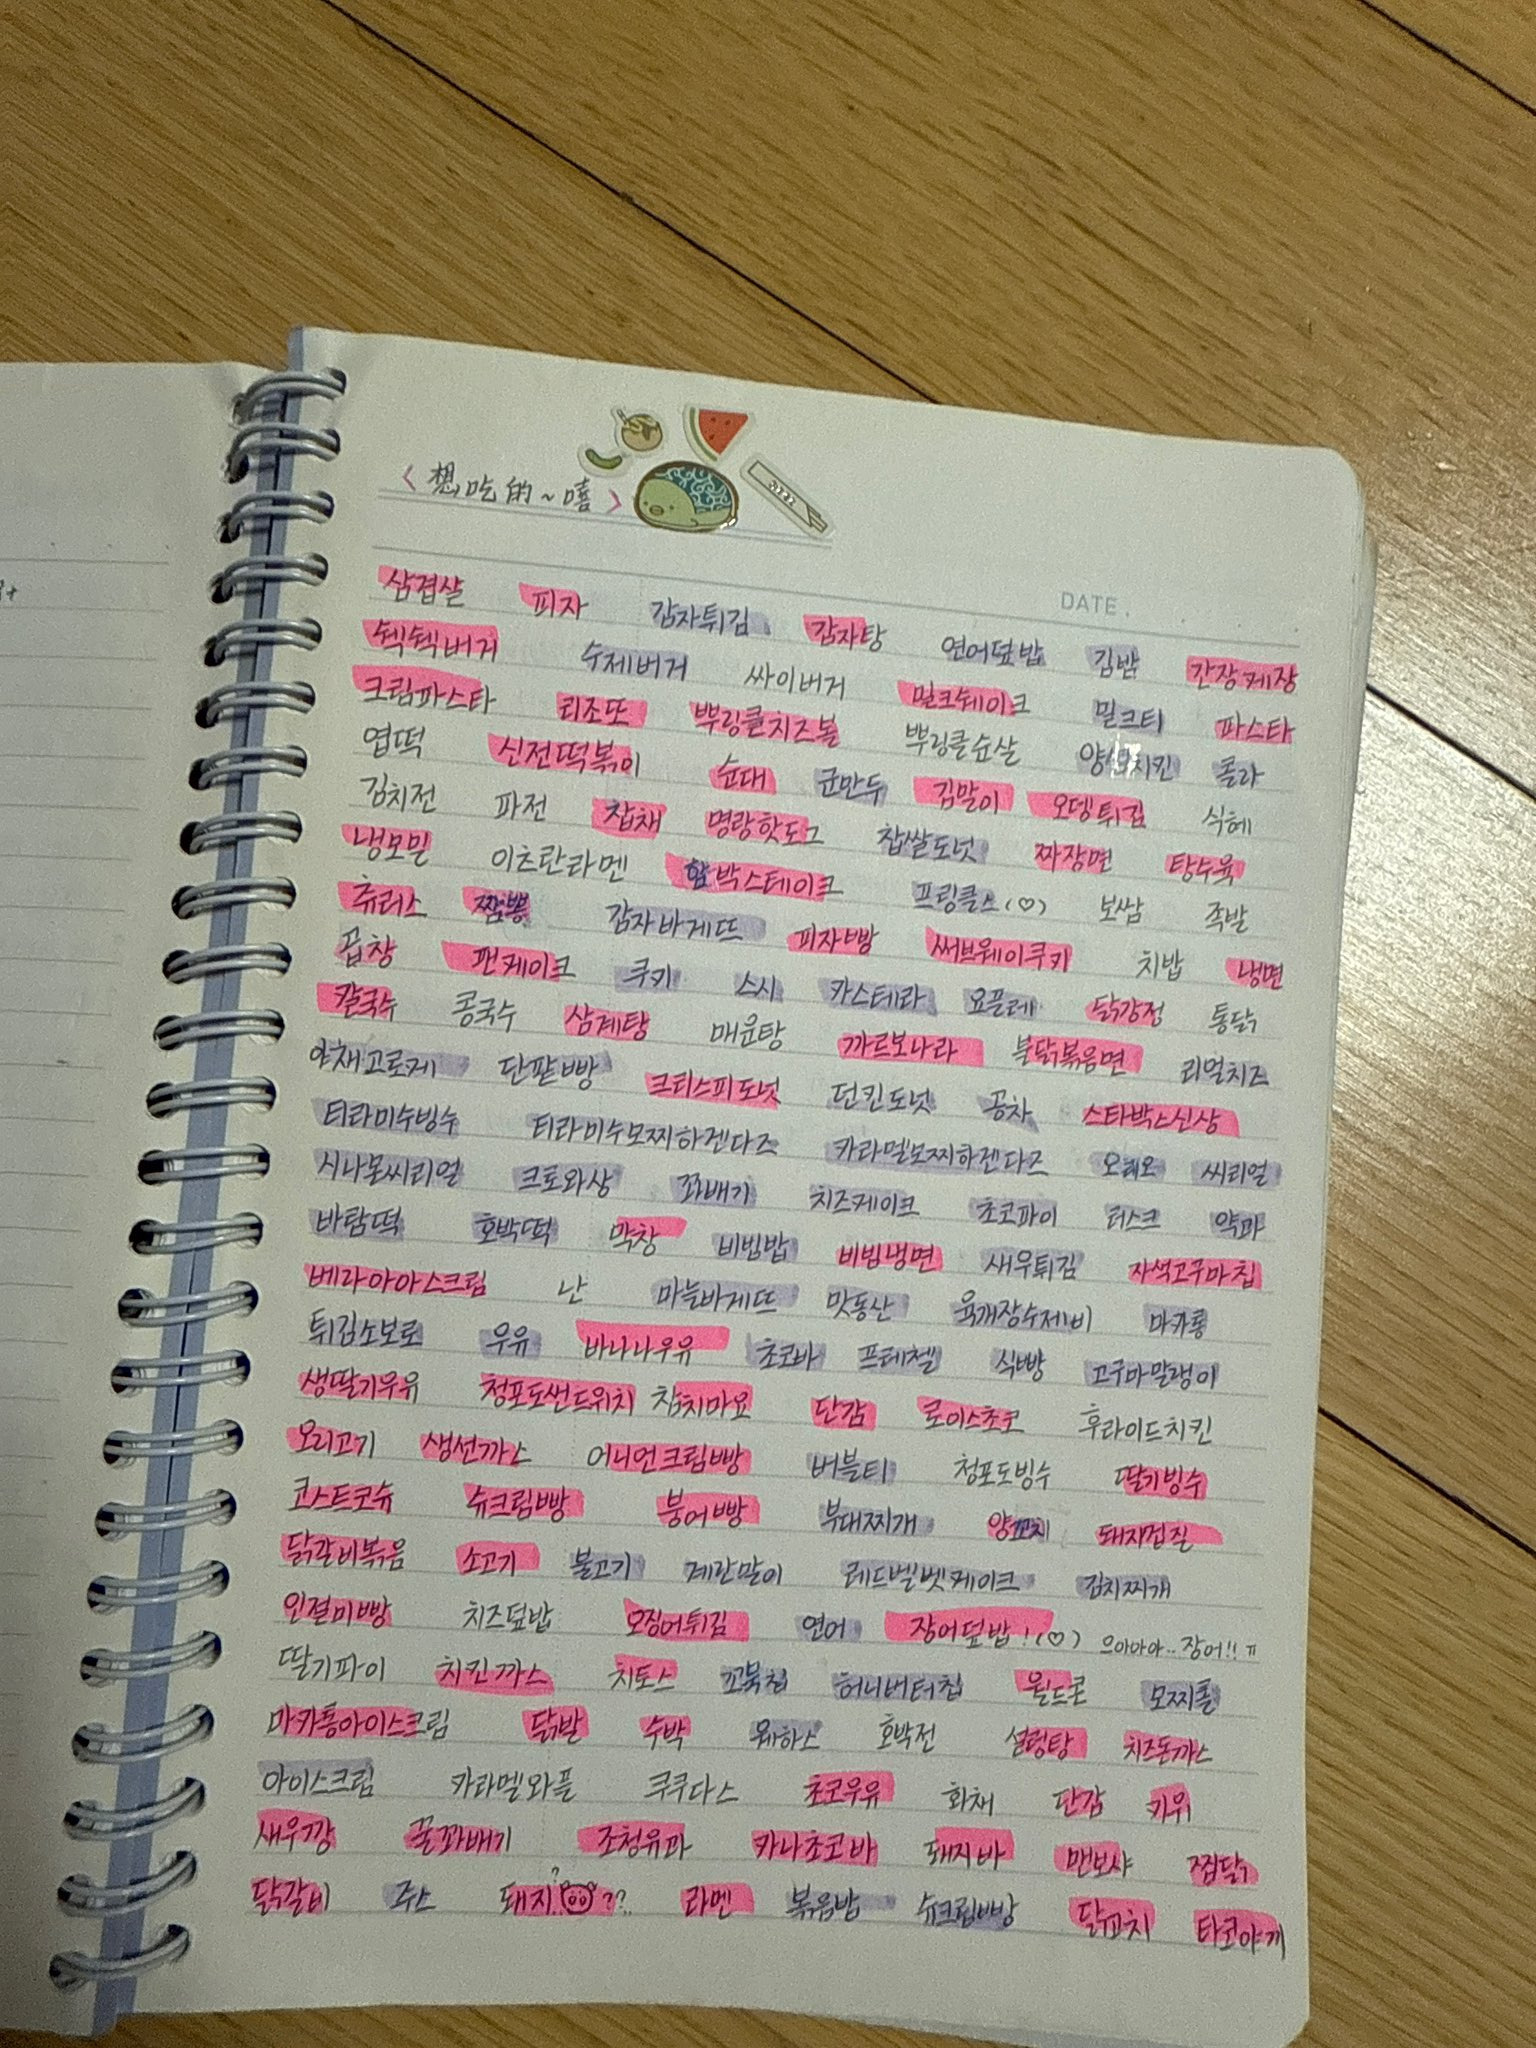 <想吃的~嘻>
DATE.
삼겹살 피자 감자튀김 감자탕 연어덮밥 김밥 간장게장
쉑쉑버거 수제버거 싸이버거 밀크쉐이크 밀크티 파스타
크림파스타 리조또 뿌링클치즈볼 뿌링클순살 콜라
엽떡 신전떡볶이 순대 군만두 김말이 오뎅튀김 식혜
김치전 파전 잡채 명랑핫도그 찹쌀도넛 짜장면 탕수육
냉모밀 이츠란라멘 함박스테이크 프링클스(♡) 보쌈 족발
츄러스 짬뽕 감자바게뜨 피자빵 써브웨이쿠키 치밥 냉면
곱창 팬케이크 쿠키 스시 카스테라 요플레 닭강정 통닭
칼국수 콩국수 삼계탕 매운탕 까르보나라 불닭볶음면 리얼치즈
야채고로케 단팥빵 크리스피도넛 던킨도넛 공차 스타박스신상
티라미수빙수 티라미수모찌하겐다즈 카라멜모찌하겐다즈 오레오 씨리얼
시나몬씨리얼 크로와상 꽈배기 치즈케이크 초코파이 러스크 약과
바람떡 호박떡 막창 비빔밥 비빔냉면 새우튀김 자색고구마칩
베라아이스크림 난 마늘바게뜨 맛동산 육개장수제비 마카롱
튀김소보로 우유 바나나우유 초코바 프레첼 식빵 고구마말랭이
생딸기우유 청포도썬드위치 참치마요 단감 로이스초코 후라이드치킨
오리고기 생선까스 어니언크림빵 버블티 청포도빙수 딸기빙수
코스트코슈 슈크림빵 붕어빵 부대찌개 양꼬치 돼지껍질
닭갈비볶음 소고기 불고기 계란말이 레드벨벳케이크 김치찌개
인절미빵 치즈덮밥 오징어튀김 연어 장어덮밥!(♡) 으아아아..장어!!ㅠ
딸기파이 치킨까스 치토스 꼬북칩 허니버터칩 월드콘 모찌롤
마카롱아이스크림 닭발 수박 웨하스 호박전 설렁탕 치즈돈까스
아이스크림 카라멜와플 쿠쿠다스 초코우유 화채 단감 키위
새우깡 꿀꽈배기 조청유과 카나초코바 돼지바 멘보샤 찜닭
닭갈비 주스 돼지??.. 라멘 볶음밥 슈크림빵 닭꼬치 타코야끼